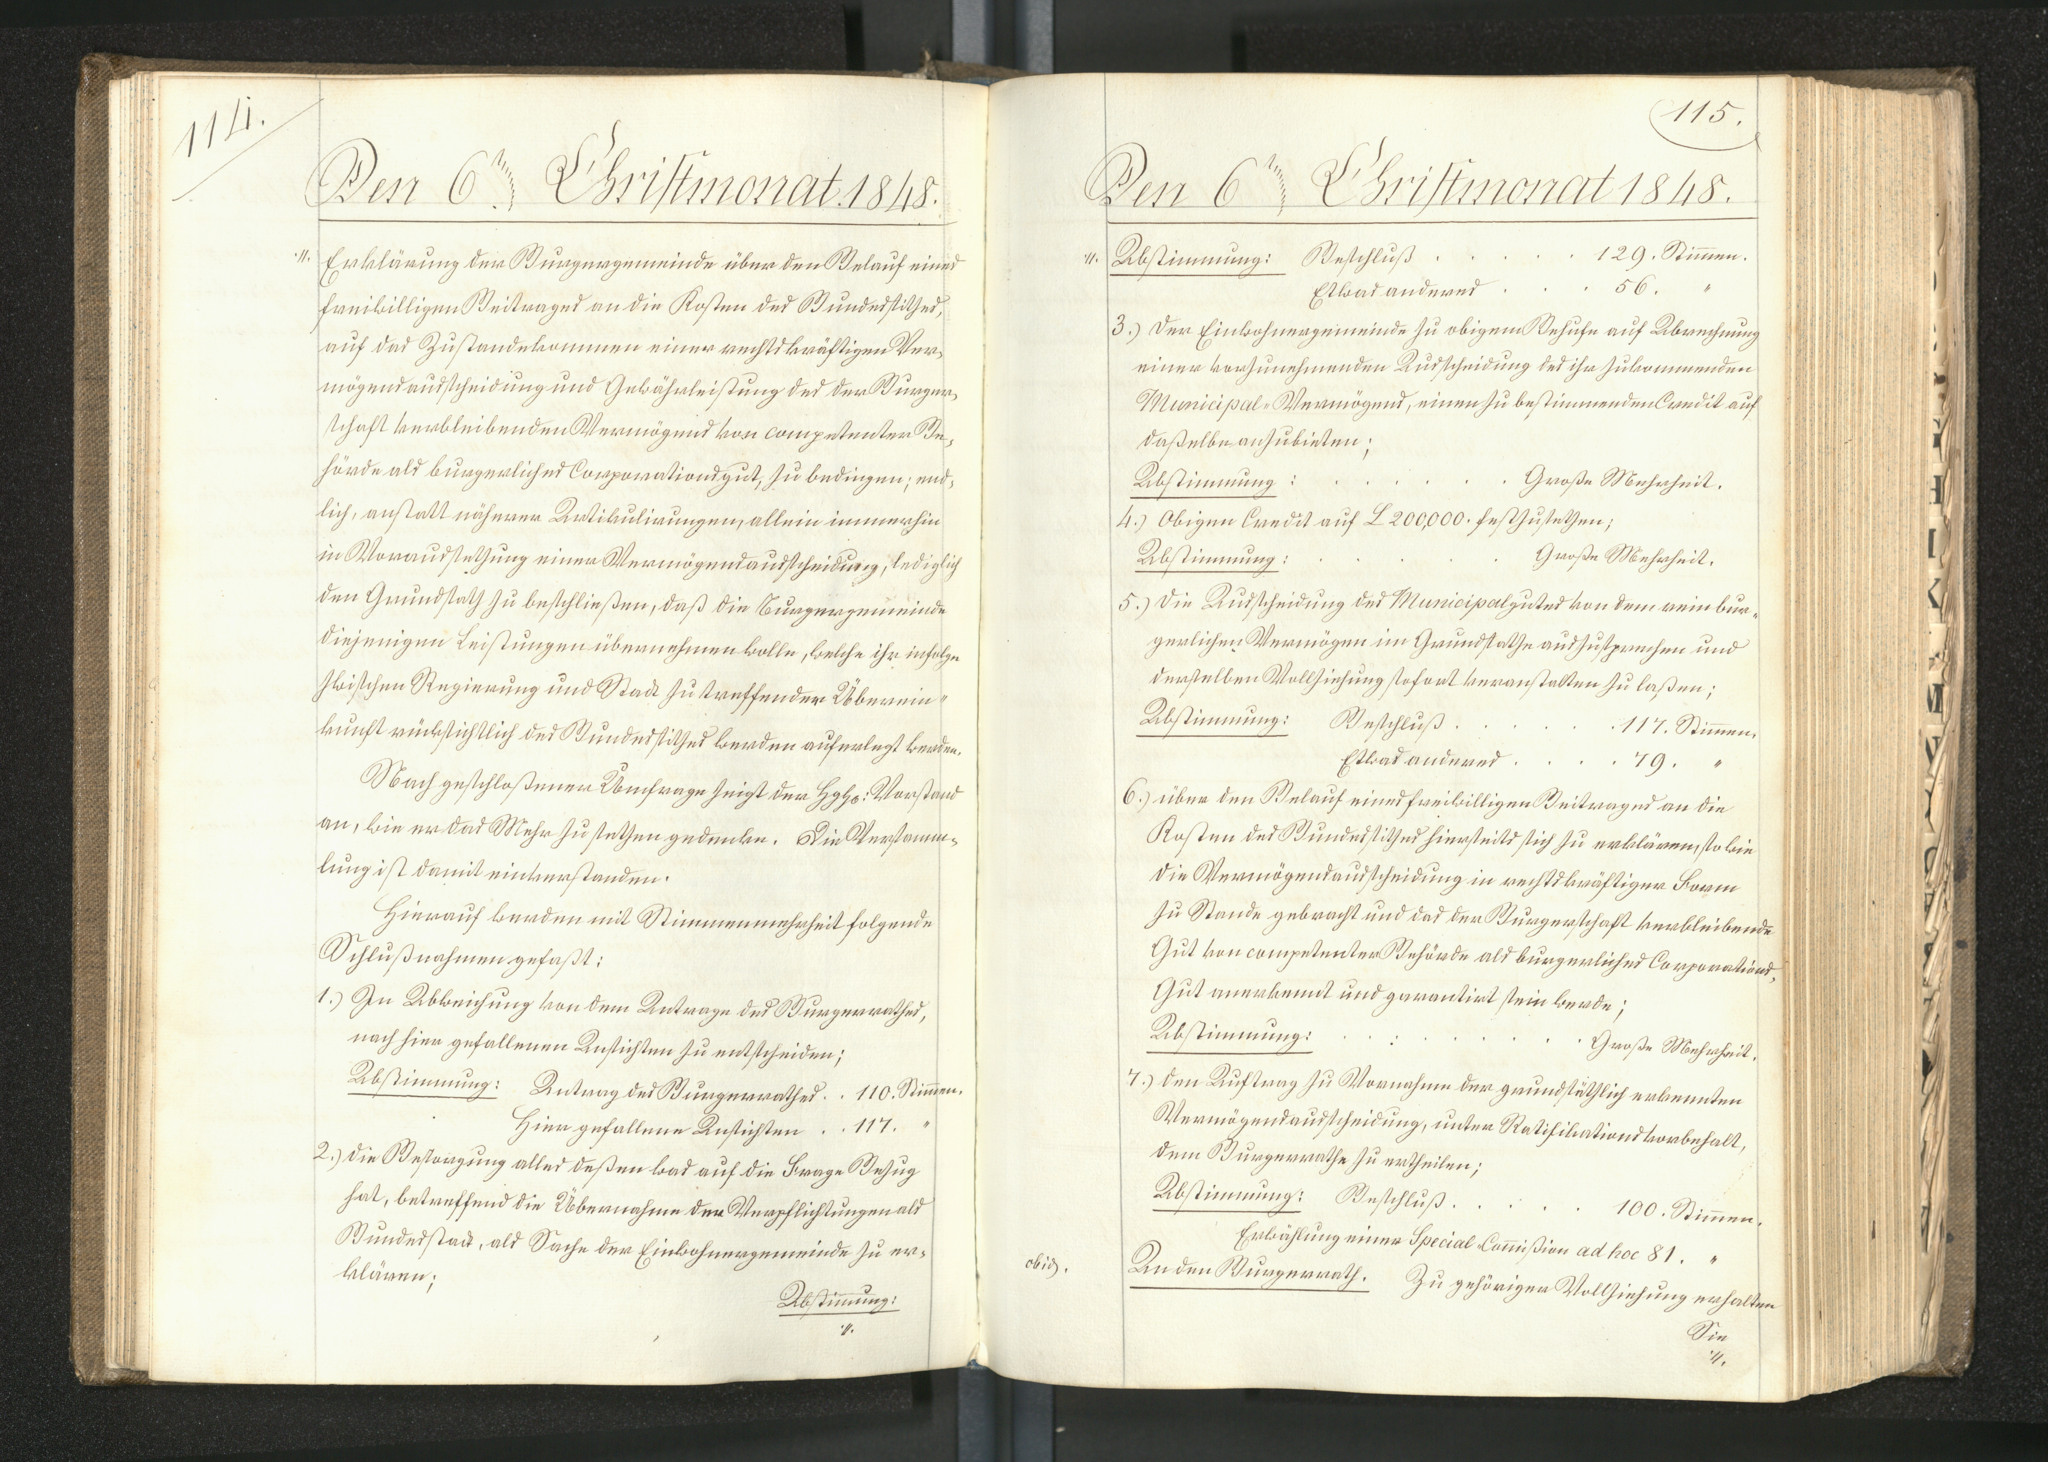 114.
Den 6ten Christmonat 1848.
·/. Erklärung der Burgergemeinde über den Belauf eines
freiwilligen Beitrages an die Kosten des Bundessitzes,
auf das Zustandekommen einer rechtskräftigen Ver-
mögensausscheidung und Gewährleistung des der Burger-
schaft verbleibenden Vermögens von competenter Be-
hörde als burgerliches Corporationsgut, zu bedingen; end-
lich, anstatt näherer Artikulirungen, allein immerhin
in Voraussetzung einer Vermögensausscheidung, lediglich
den Grundsatz zu beschließen, daß die Burgergemeinde
diejenigen Leistungen übernehmen wolle, welche ihr infolge
zwischen Regierung und Stadt zu treffender Überein-
kunft rücksichtlich des Bundessitzes werden auferlegt werden.
Nach geschloßener Umfrage zeigt der HgHr: Vorstand
an, wie er das Mehr zu setzen gedenke. Die Versamm-
lung ist damit einverstanden.
Hierauf werden mit Stimmenmehrheit folgende
Schlußnahmen gefaßt:
1.) In Abweichung von dem Antrage des Burgerrathes,
nach hier gefallenen Ansichten zu entscheiden;
Abstimmung: Antrag des Burgerrathes . . 110. Stimmen.
Hier gefallene Ansichten . . 117. "
2.) die Besorgung alles deßen was auf die Frage Bezug
hat, betreffend die Übernahme der Verpflichtungen als
Bundesstadt, als Sache der Einwohnergemeinde zu er-
klären;
Abstimmung:
·/.
115.
Den 6ten Christmonat 1848.
·/. Abstimmung: Beschluß . . . . . 129. Stimmen.
Etwas anderes . . . 56. "
3.) der Einwohnergemeinde zu obigem Behufe auf Abrechnung
einer vorzunehmenden Ausscheidung des ihr zukommenden
Municipal-Vermögens, einen zu bestimmenden Credit auf
daßelbe anzubieten;
Abstimmung: . . . . . . Große Mehrheit.
4.) Obigen Credit auf L 200,000. festzusetzen;
Abstimmung: . . . . . Große Mehrheit.
5.) die Ausscheidung des Municipalgutes von dem rein bur-
gerlichen Vermögen im Grundsatze auszusprechen und
derselben Vollziehung sofort veranstalten zu laßen;
Abstimmung: Beschluß . . . . . 117. Stimmen.
Etwas anderes . . . . 79. "
6.) über den Belauf eines freiwilligen Beitrages an die
Kosten des Bundessitzes hierseits sich zu erklären, so wie
die Vermögensausscheidung in rechtskräftiger Form
zu Stande gebracht und das der Burgerschaft verbleibende
Gut von competenter Behörde als burgerliches Corporations-
Gut anerkennt und garantirt sein werde;
Abstimmung: . . . . . . . . Große Mehrheit.
7.) den Auftrag zu Vornahme der grundsätzlich erkennten
Vermögensausscheidung, unter Ratifikationsvorbehalt,
dem Burgerrathe zu ertheilen;
Abstimmung: Beschluß . . . . . 100. Stimmen.
Erwählung einer Special Commißion ad hoc 81. "
An den Burgerrath. Zu gehöriger Vollziehung erhalten
Sie
·/.